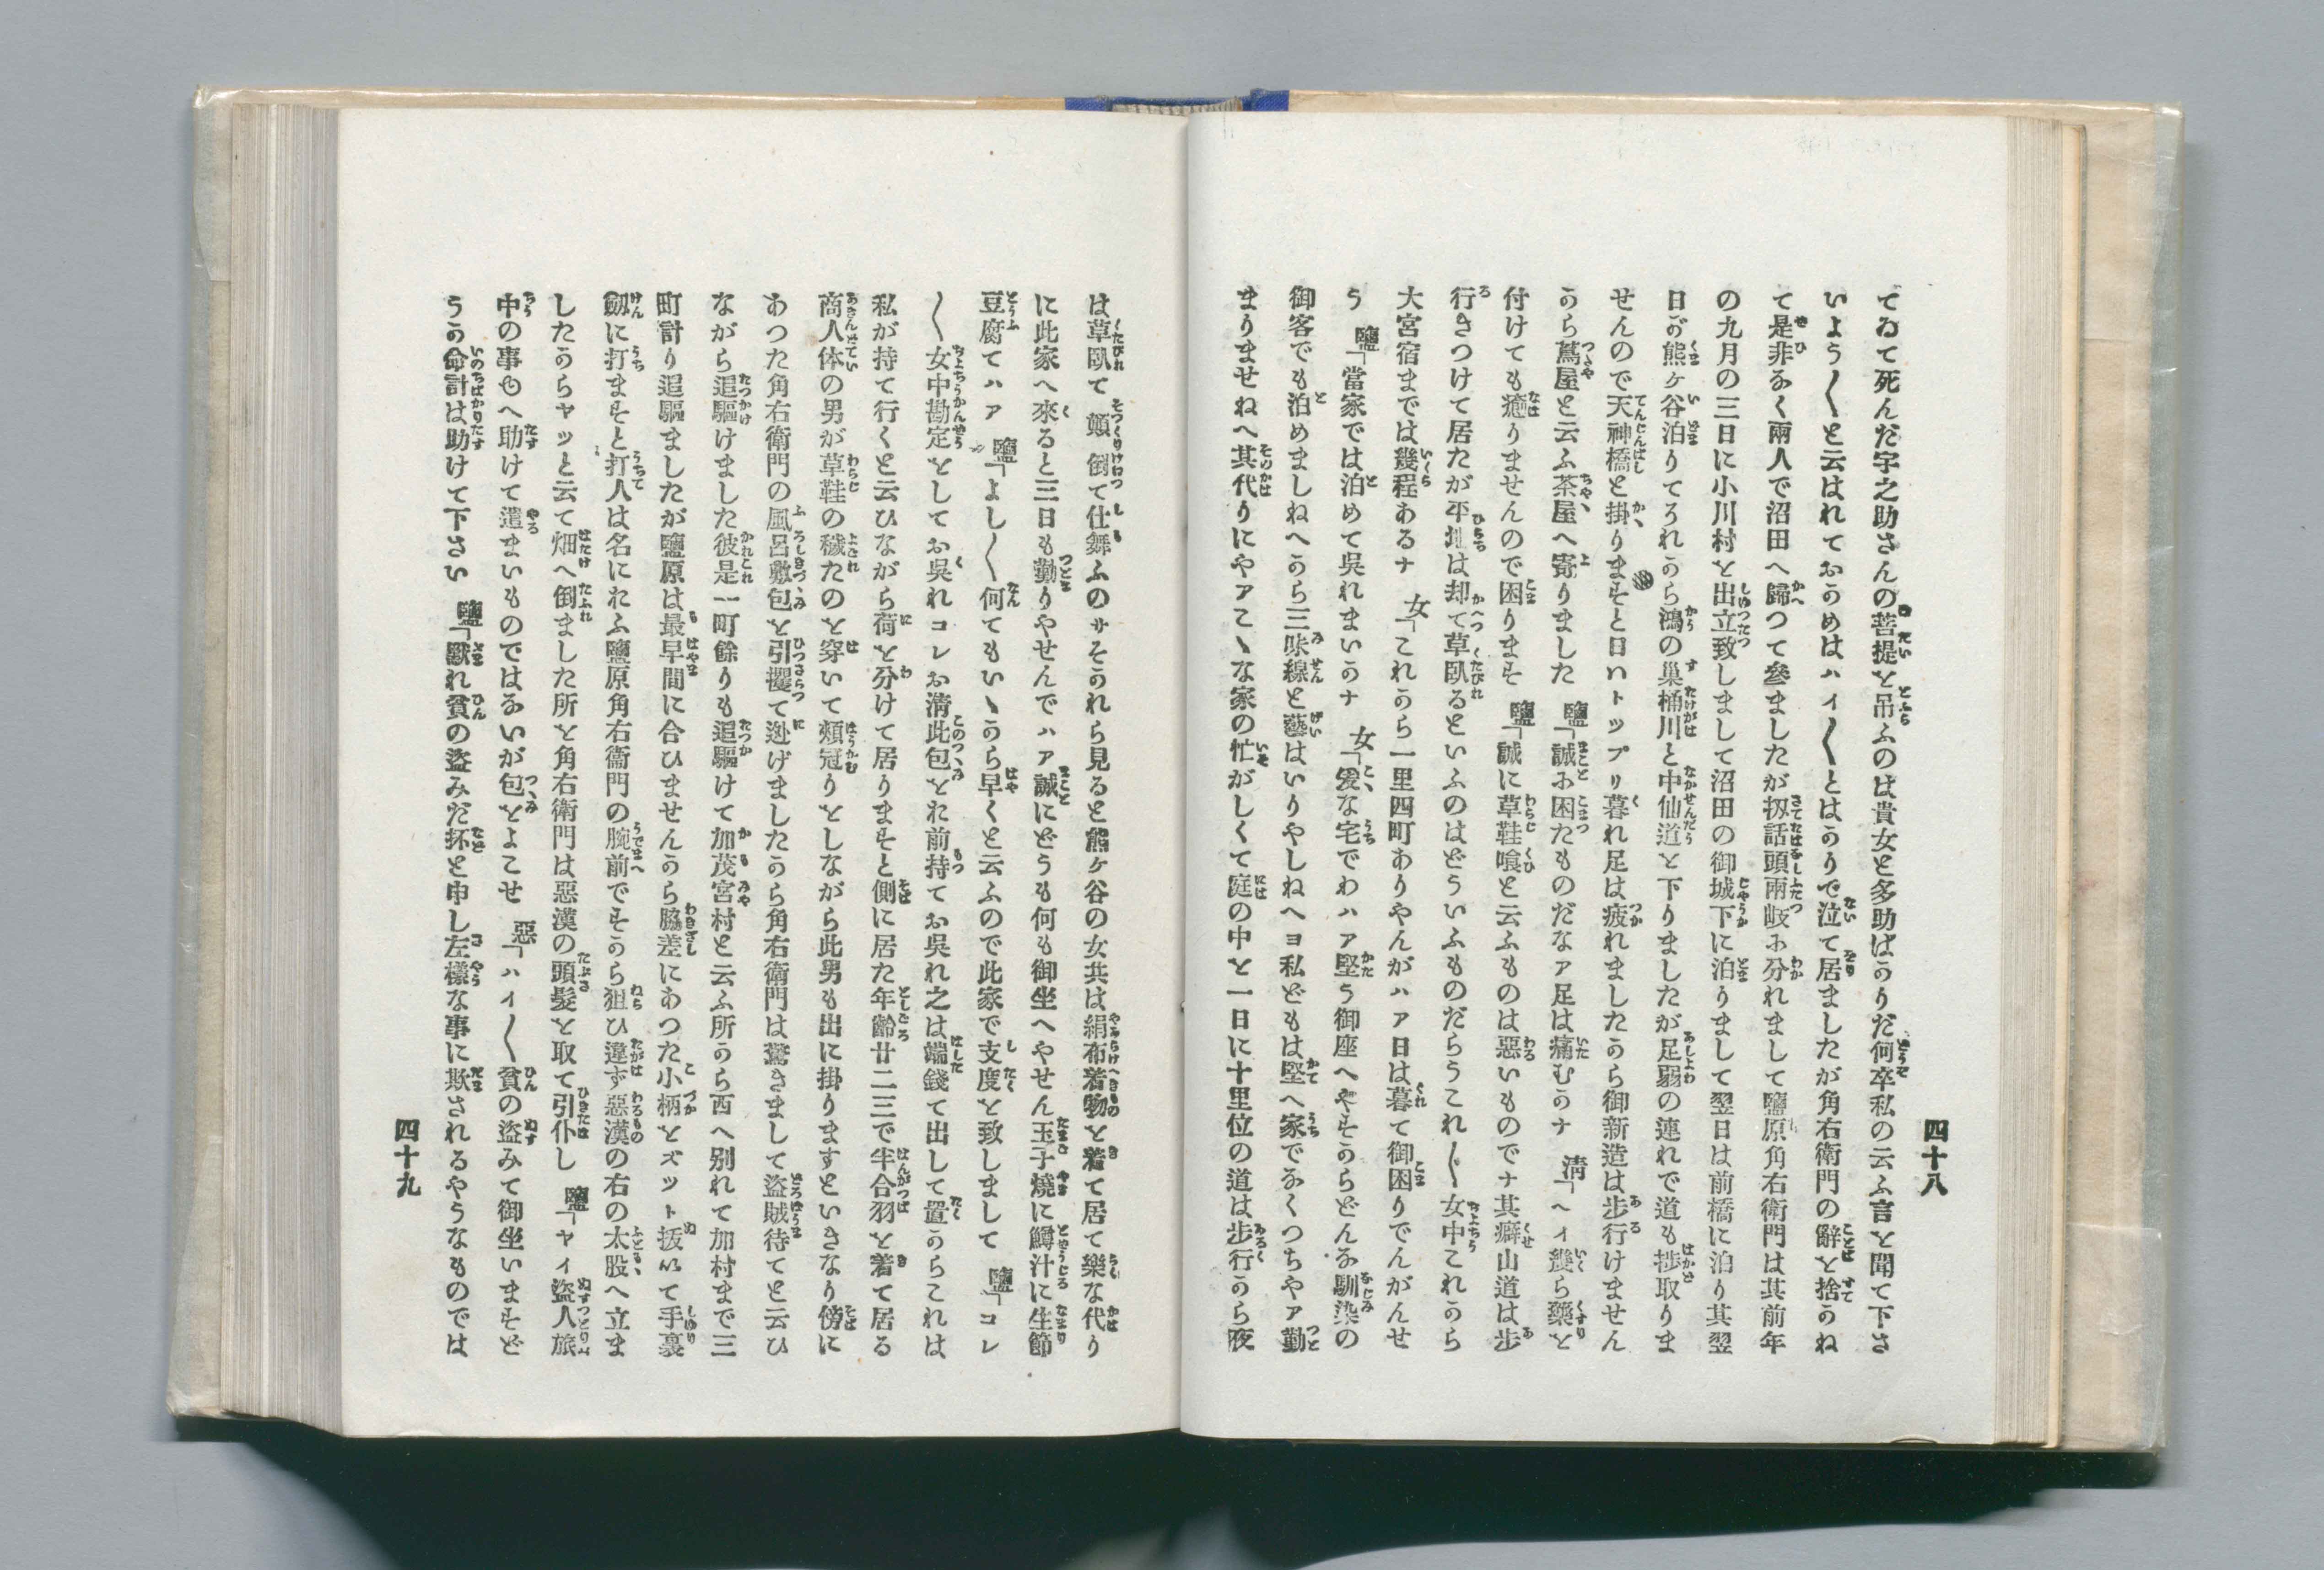 四十八
てゐて死んだ宇之助さんの菩提を吊ふのは貴女と多助ばかりだ何卒私の云ふ言を聞て下さ
いよう〱と云はれておかめはハイ〱とばかりで泣て居ましたが角右衛門の辭を捨かね
て是非なく兩人で沼田へ歸つて參ましたが扨話頭兩岐に分れまして鹽原角右衛門は其前年
の九月の三日に小川村を出立致しまして沼田の御城下に泊りまして翌日は前橋に泊り其翌
日が熊ヶ谷泊りてそれから鴻の巣桶川と中仙道を下りましたが足弱の連れで道も捗取りま
せんので天神橋と掛りますと日ハトップリ暮れ足は疲れましたから御新造は步行けません
から蔦屋と云ふ茶屋へ寄りました　鹽「誠に困たものだなァ足は痛むかナ　清「ヘイ幾ら藥を
付けても癒りませんので困ります　鹽「誠に草鞋喰と云ふものは惡いものでナ其癖山道は步
行きつけて居たが平地は却て草臥るといふのはどういふものだらうこれ〱女中これから
大宮宿までは幾程あるナ　女「これから一里四町ありやんがハァ日は暮て御困りでんがんせ
う　鹽「當家では泊めて呉れまいかナ　女「爰な宅でわハァ堅う御座へやすからどんな馴染の
御客でも泊めましねへから三味線と藝はいりやしねヘヨ私どもは堅へ家でなくつちやァ勤
まりませねへ其代りにやァこゝな家の忙がしくて庭の中を一日に十里位の道は步行から夜
は草臥て顛倒て仕舞ふのサそれから見ると熊ヶ谷の女共は絹布着物を着て居て樂な代り
に此家へ來ると三日も勤りやせんでハァ誠にどうも何も御坐へやせん玉子燒に鱒汁に生節
豆腐てハァ　鹽「よし〱何てもいゝから早くと云ふので此家で支度を致しまして　鹽「コレ
〱女中勘定をしてお呉れコレお清此包をお前持てお呉れ之は端錢て出して置からこれは
私が持て行くと云ひながら荷を分けて居りますと側に居た年齡廿二三で半合羽を着て居る
商人体の男が草鞋の穢たのを穿いて頬冠りをしながら此男も出に掛りますといきなり傍に
あつた角右衛門の風呂敷包を引攫て逃げましたから角右衛門は驚きまして盜賊待てと云ひ
ながら追驅けました彼是一町餘りも追驅けて加茂宮村と云ふ所から西へ別れて加村まで三
町計り追驅ましたが鹽原は最早間に合ひませんから脇差にあつた小柄をズット拔いて手裏
劔に打ますと打人は名におふ鹽原角右衞門の腕前ですから狙ひ違ず惡漢の右の太股へ立ま
したからヤッと云て畑へ倒ました所を角右衛門は惡漢の頭髮を取て引仆し　鹽「ヤイ盜人旅
中の事ゆへ助けて遣まいものではないが包をよこせ　惡「ハイ〱貧の盜みて御坐いますど
うか命計は助けて下さい　鹽「默れ貧の盜みだ抔と申し左樣な事に欺されるやうなものでは
四十九